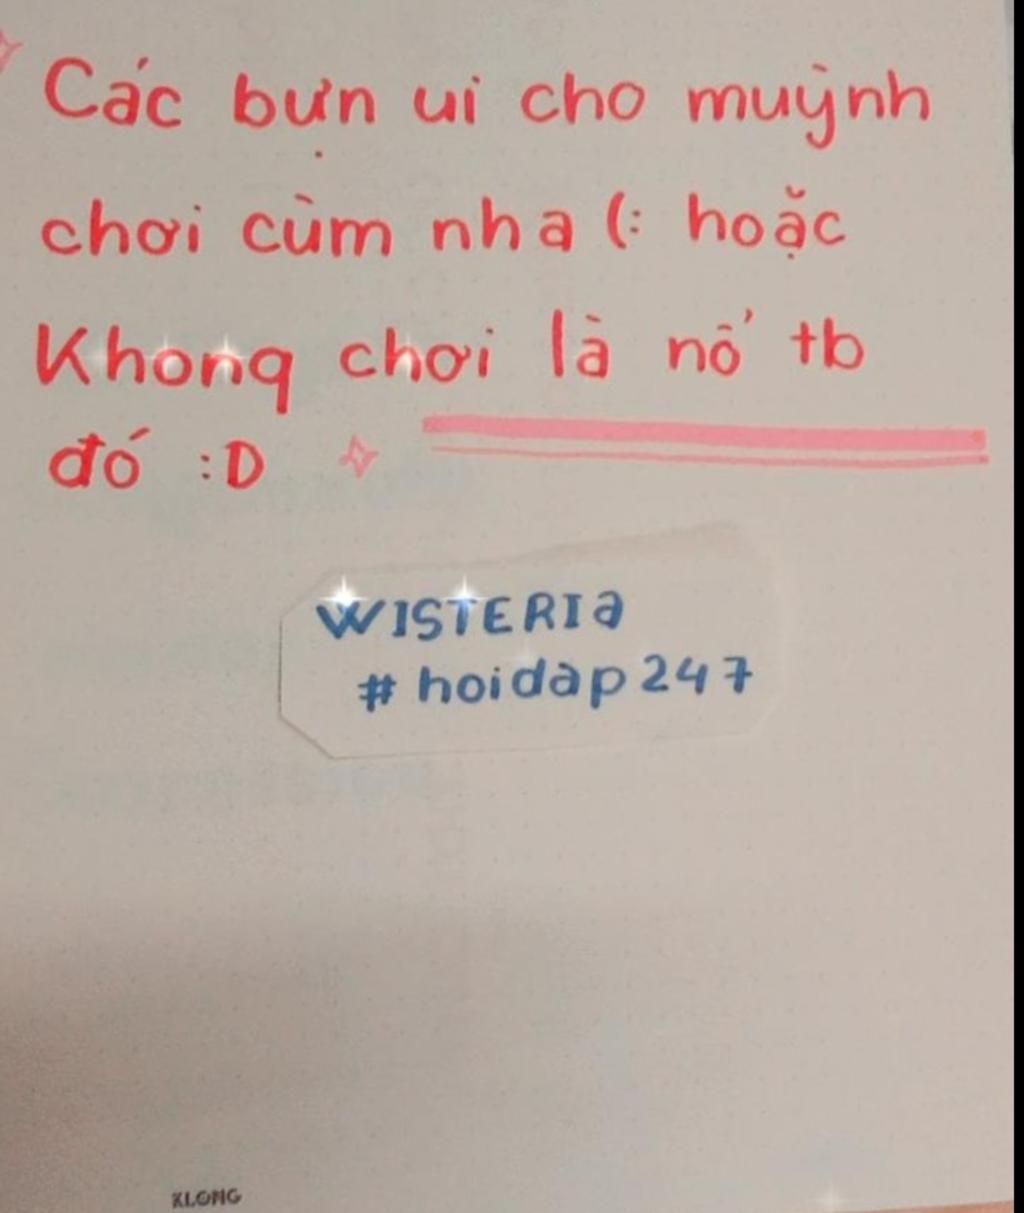 Các bựn ui cho muỳnh
chơi cùm nha (: hoặc
Khong chơi là nổ tb
đó :D
WISTERIa
#hoidap247
KLONG